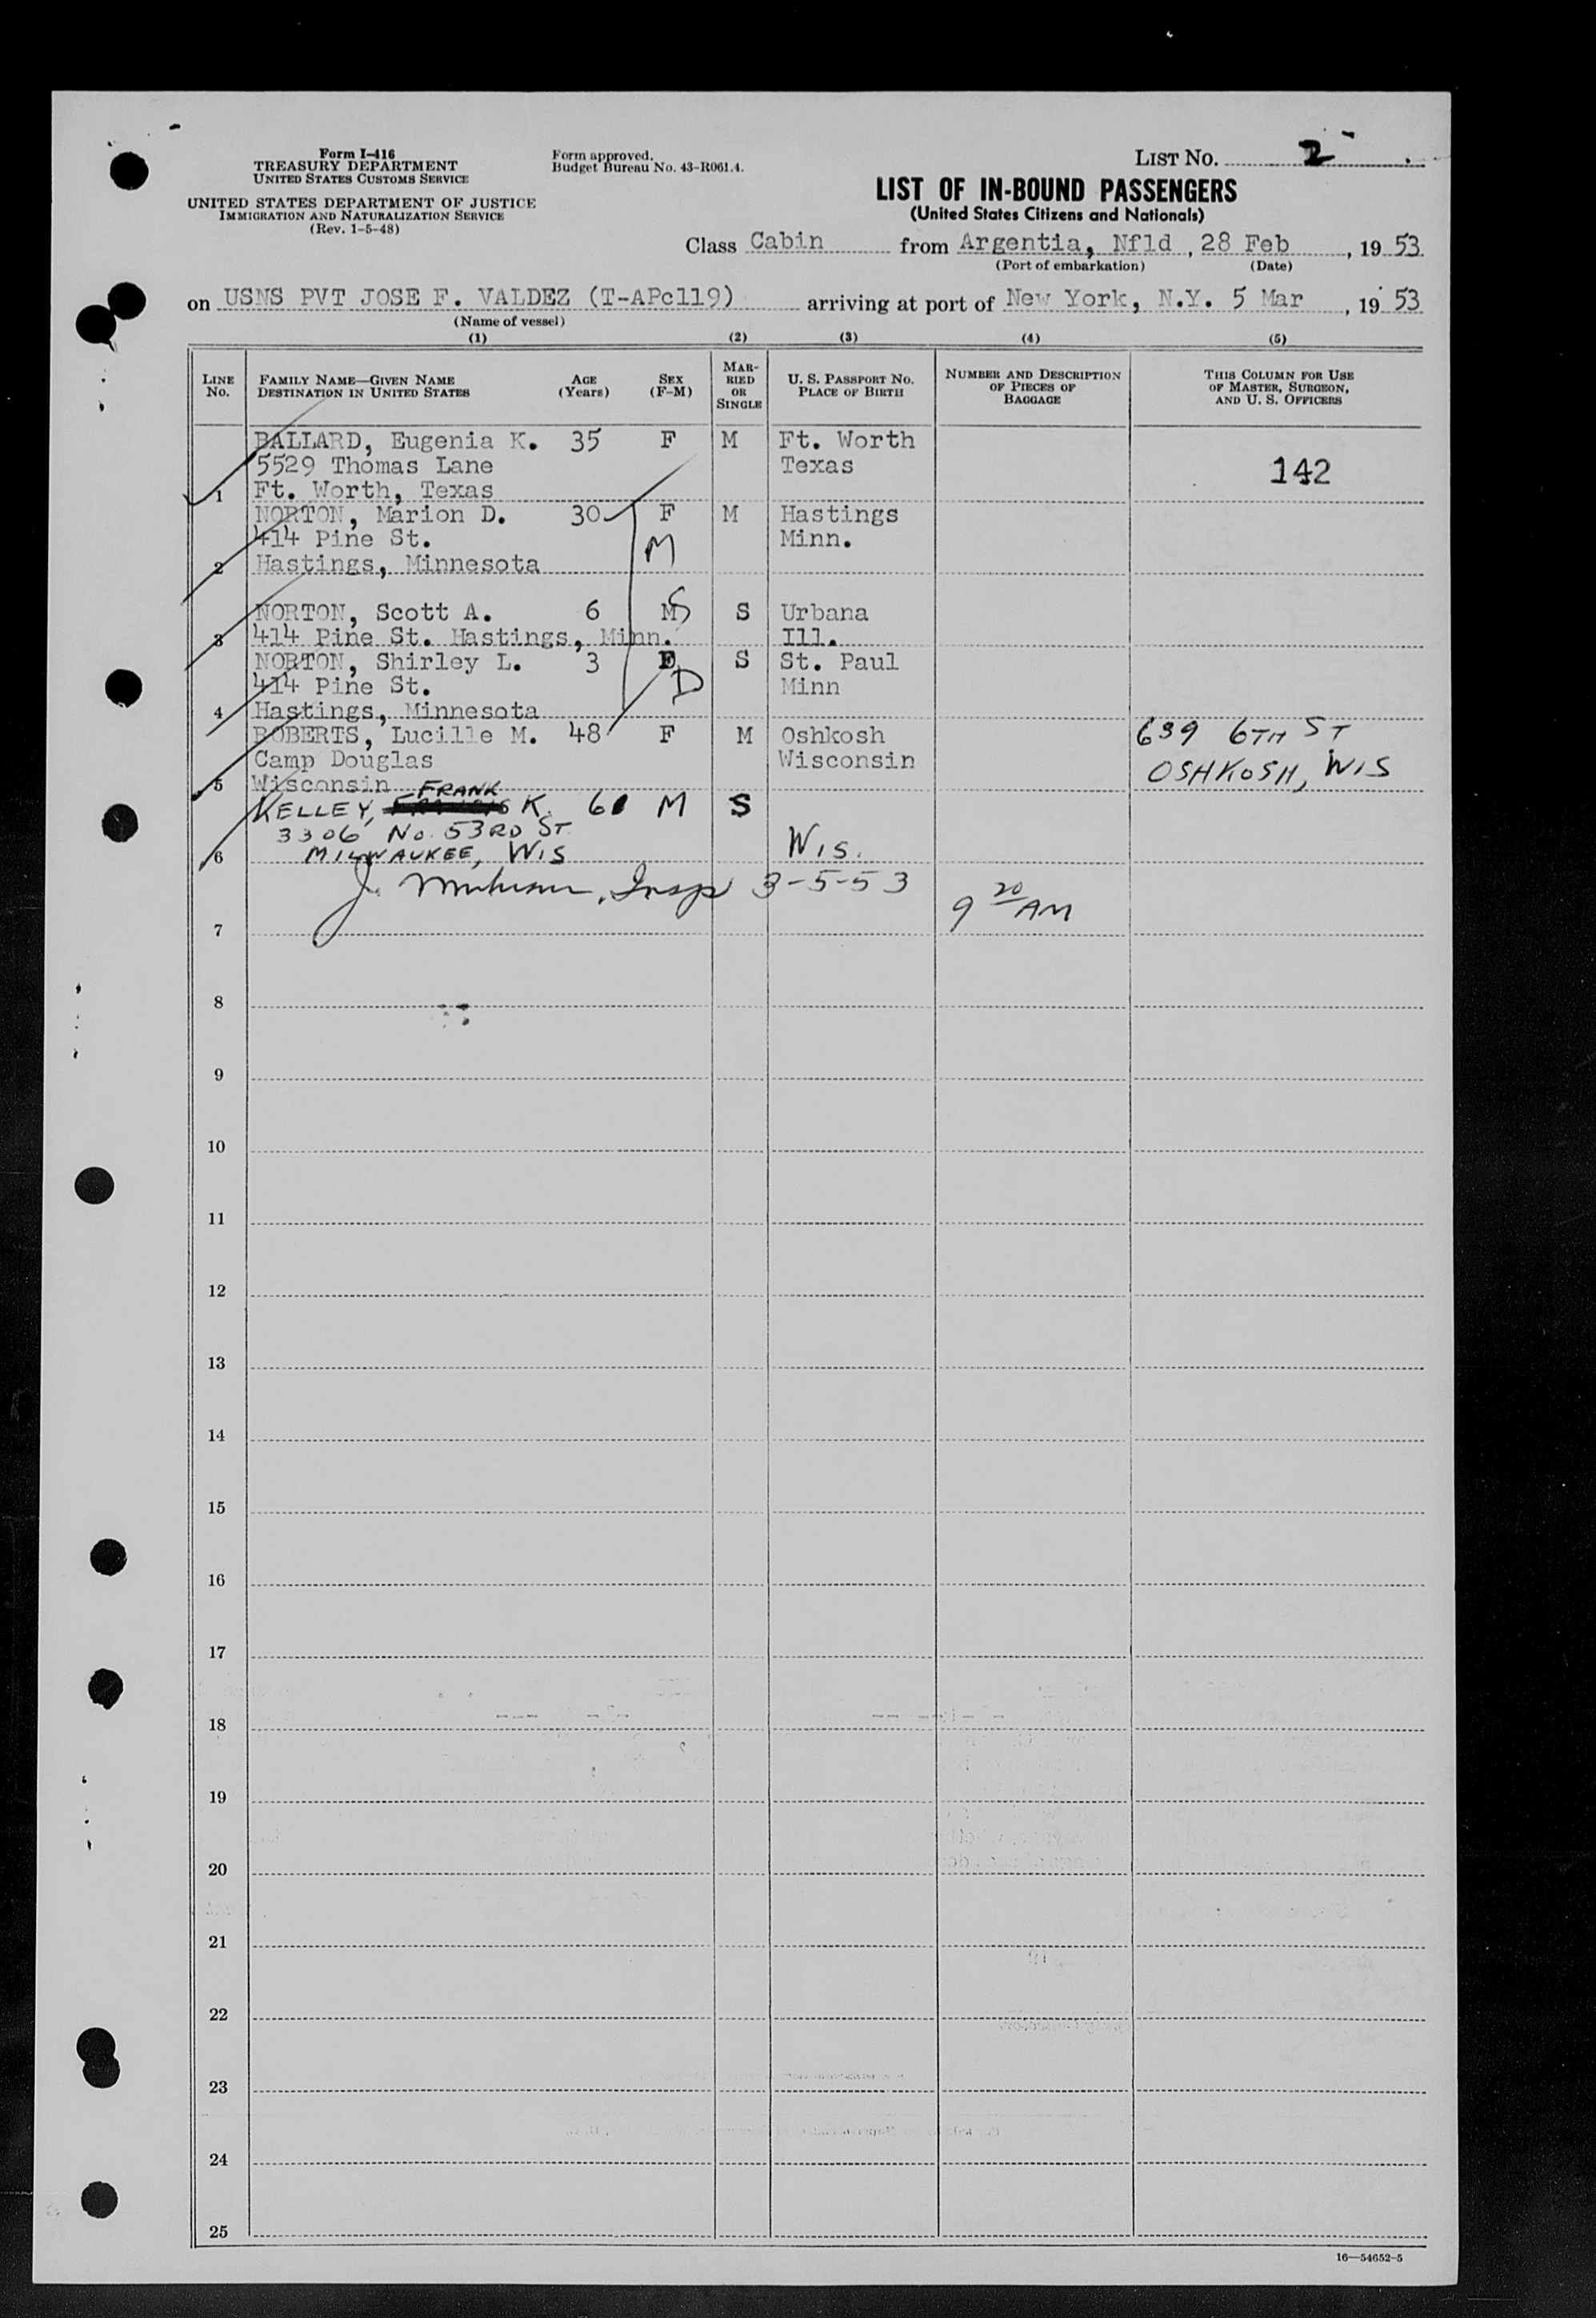 Form I-416
TREASURY DEPARTMENT
UNITED STATES CUSTOMS SERVICE
UNITED STATES DEPARTMENT OF JUSTICE
IMMIGRATION AND NATURALIZATION SERVICE
(Rev. 1-5-48)
Form approved.
Budget Bureau No. 43-R061.4.
LIST No. 2
LIST OF IN-BOUND PASSENGERS
(United States Citizens and Nationals)
Class Cabin from Argentia, Nfld, 28 Feb, 19 53
(Port of embarkation) (Date)
on USNS PVT JOSE F. VALDEZ (T-APc119) arriving at port of New York, N.Y. 5 Mar, 19 53
(Name of vessel)
(1) (2) (3) (4) (5)
LINE No. FAMILY NAME—GIVEN NAME DESTINATION IN UNITED STATES AGE (Years) SEX (F-M) MARRIED OR SINGLE U. S. PASSPORT No. PLACE OF BIRTH NUMBER AND DESCRIPTION OF PIECES OF BAGGAGE THIS COLUMN FOR USE OF MASTER, SURGEON, AND U. S. OFFICERS
BALLARD, Eugenia K. 35 F M Ft. Worth
5529 Thomas Lane Texas 142
1 Ft. Worth, Texas
NORTON, Marion D. 30 F M Hastings
414 Pine St. M Minn.
2 Hastings, Minnesota
NORTON, Scott A. 6 M S S Urbana
3 414 Pine St. Hastings, Minn. Ill.
NORTON, Shirley L. 3 F S St. Paul
414 Pine St. D Minn
4 Hastings, Minnesota
ROBERTS, Lucille M. 48 F M Oshkosh 639 6TH ST
Camp Douglas Wisconsin OSHKOSH, WIS
5 Wisconsin
FRANK
KELLEY, K. 60 M S
3306 No. 53RD ST
6 MILWAUKEE, WIS WIS.
J. Insp 3-5-53 9 20 AM
7
8
9
10
11
12
13
14
15
16
17
18
19
20
21
22
23
24
25
16—54652-5